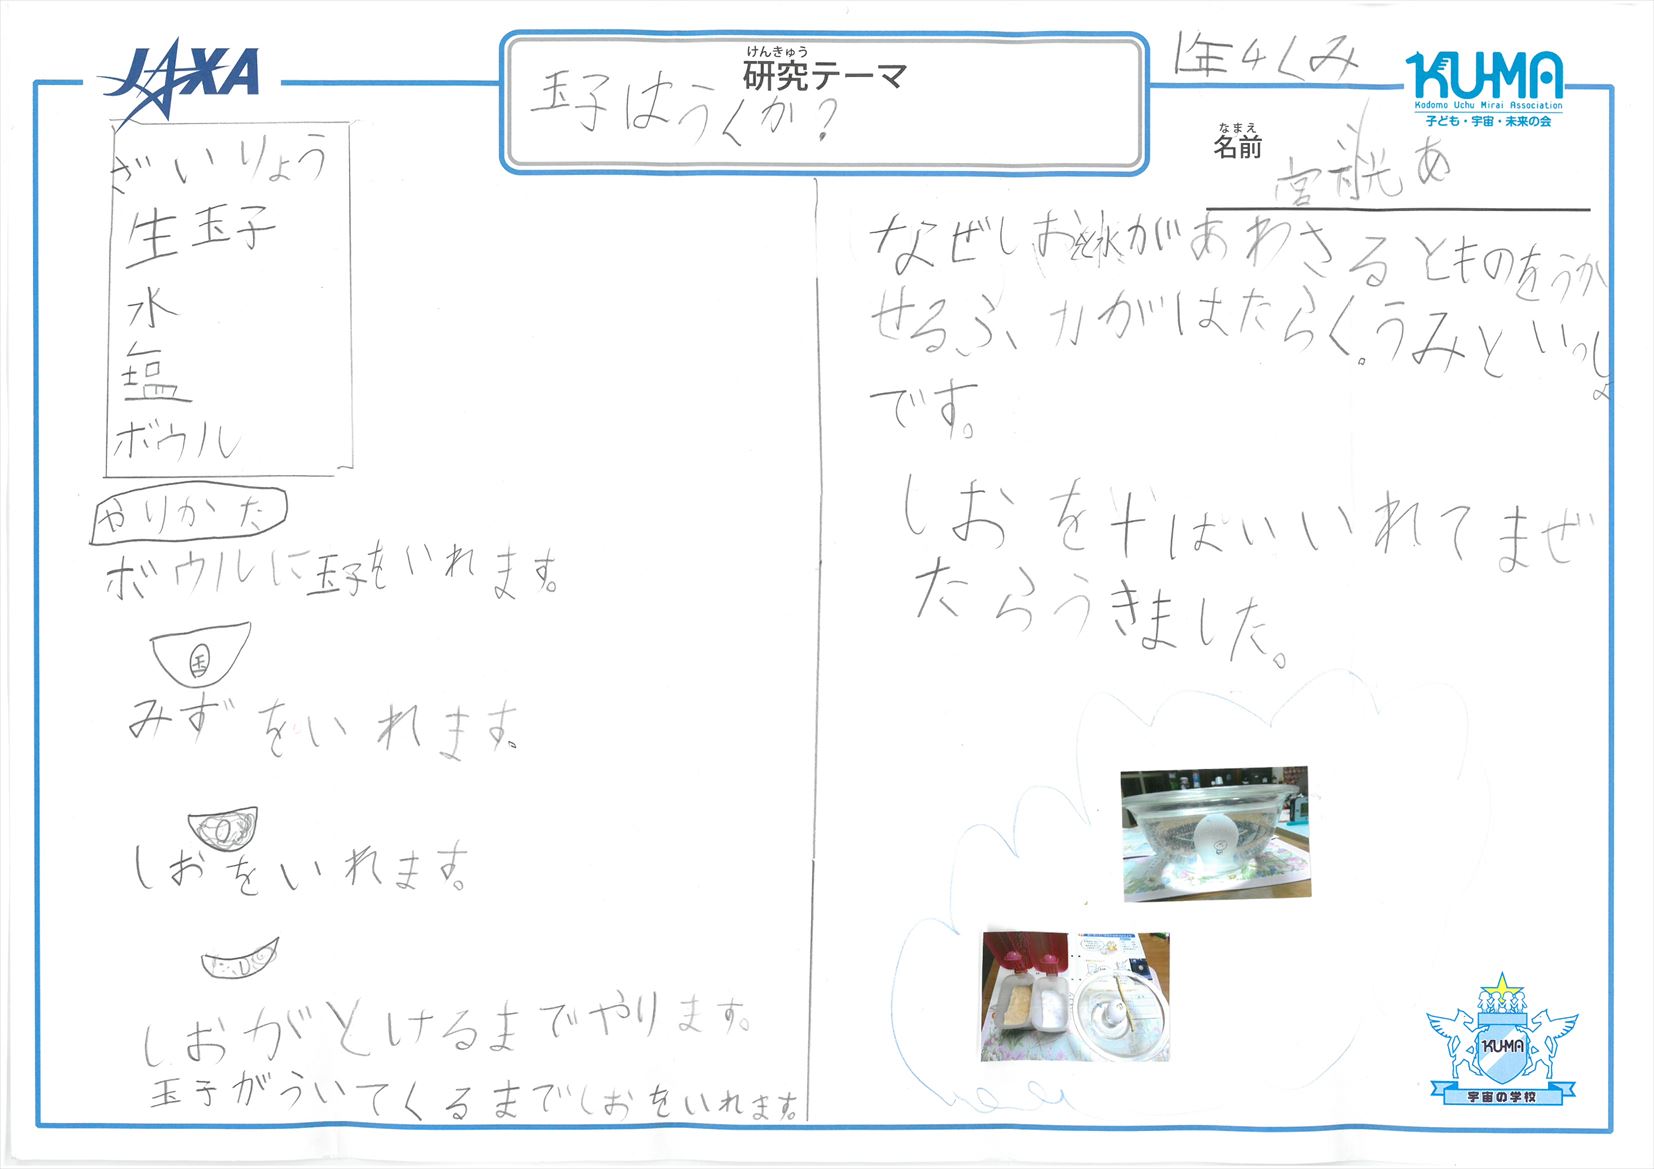 JAXA
けんきゅう
研究テーマ
玉子はうくか?
1年4くみ
KU-MA
Kodomo Uchu Mirai Association
子ども・宇宙・未来の会
なまえ
名前
ざいりょう
生玉子
水
塩
ボウル
やりかた
ボウルに玉子をいれます。
玉
みずをいれます。
しおをいれます。
しおがとけるまでやります。
玉子がういてくるまでしおをいれます。
なぜしおと水があわさるとものをうか
せるふ力がはたらく。うみといっしょ
です。
しおを十ぱいいれてまぜ
たらうきました。
KU-MA
宇宙の学校